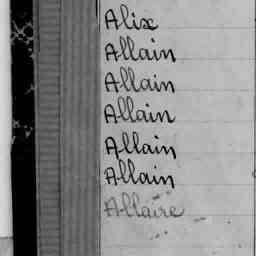 Alix
Allain
Allain
Allain
Allain
Allain
Allaire